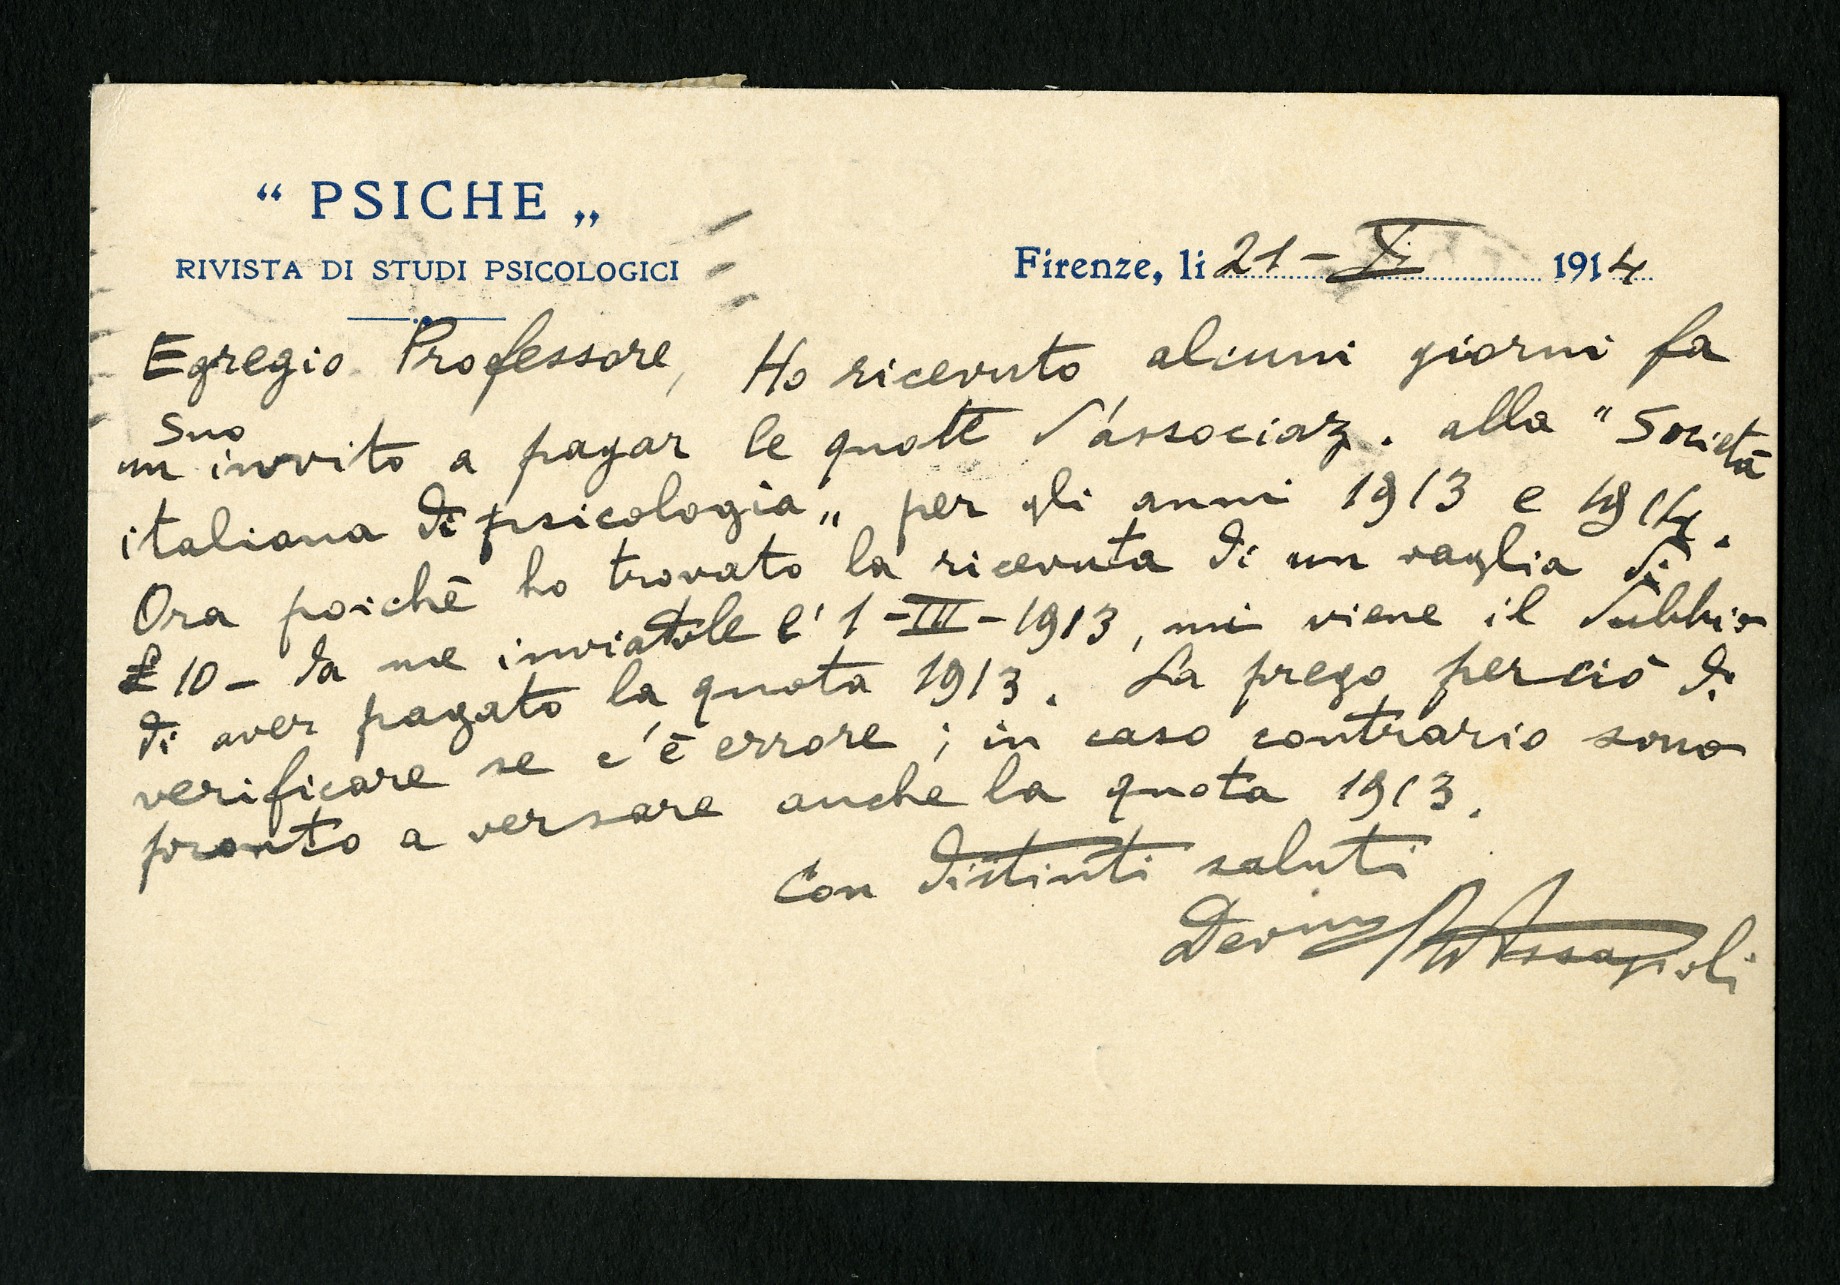 “ PSICHE „
RIVISTA DI STUDI PSICOLOGICI
Firenze, li 21-XI 1914
Egregio Professore, Ho ricevuto alcuni giorni fa
un Suo invito a pagar le quote d'associaz. alla "Società
italiana di psicologia„ per gli anni 1913 e 1914.
Ora poichè ho trovato la ricevuta di un vaglia di
£ 10- da me inviatole l' 1-III-1913, mi viene il dubbio
di aver pagato la quota 1913. La prego perciò di
verificare se c'è errore; in caso contrario sono
pronto a versare anche la quota 1913.
Con distinti saluti
Dev.mo R. Assagioli